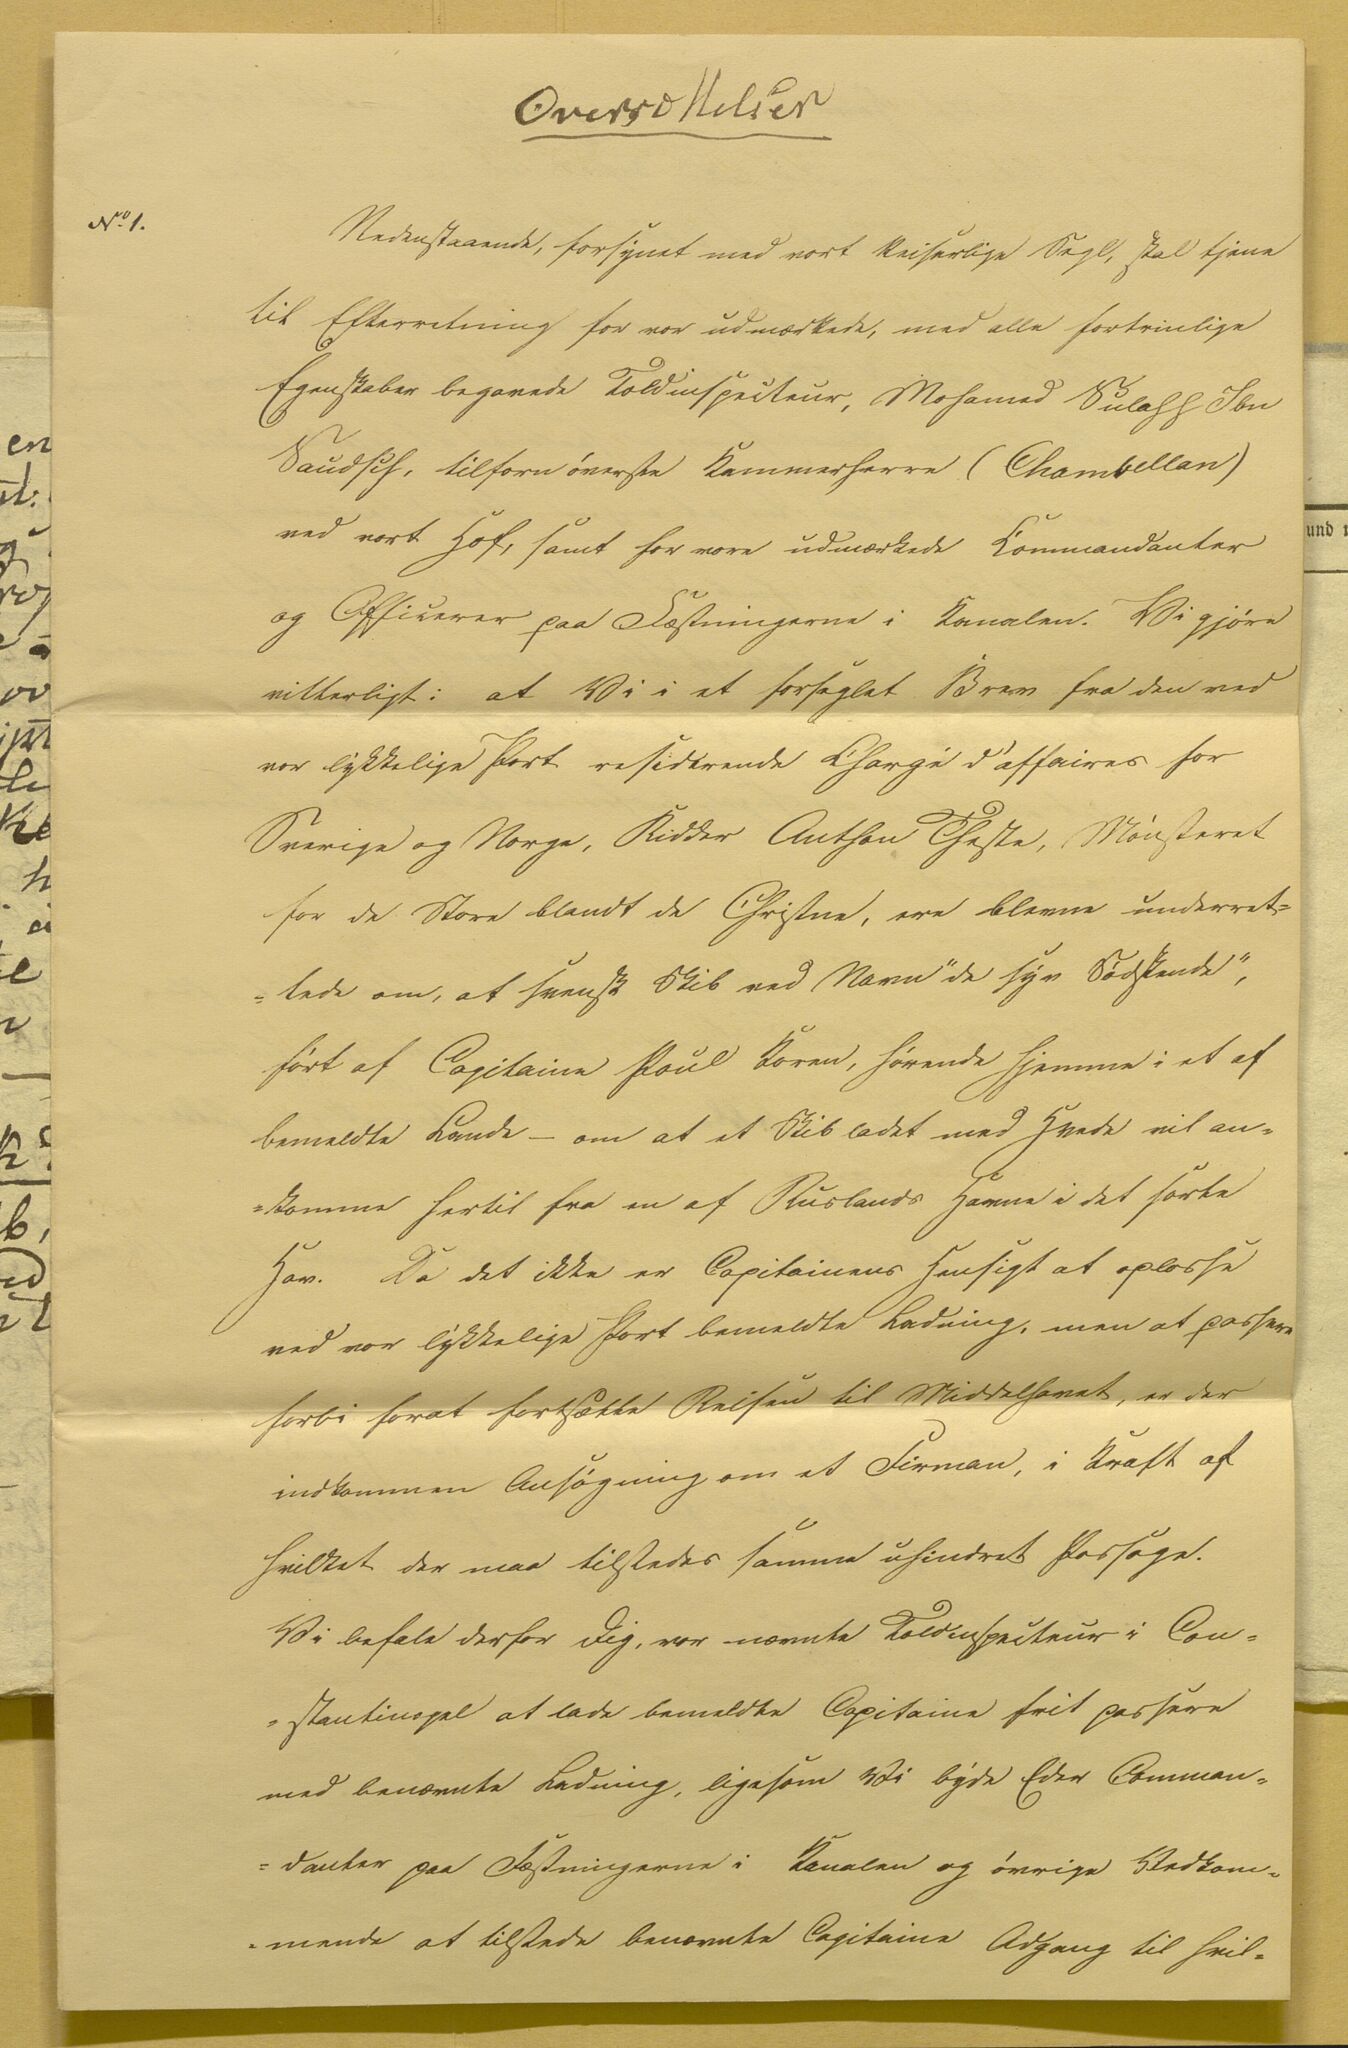 Oversættelser
No 1.
Nedenstaaende, forsynet med vort Keiserlige Segl, skal tjene
til Efterretning for vor udmærkede, med alle fortrinlige
Egenskaber begavede Toldinspecteur, Mohamed Sulahh Ibn
Saudsch, tilforn överste Kammerherre (Chambellan)
ved vort Hof, samt for vore udmærkede Commandanter
og Officerer paa Fæstningerne i Kanalen. Vi gjöre
vitterligt: at Vi i et forseglet Brev fra den ved
vor lykkelige Port residerende Chargé d'affaires for
Sverige og Norge, Ridder Anthon Theste, Mönsteret
for de Store blandt de Christne, ere blevne underret=
=tede om, at svensk Skib ved Navn "de syv Södskende",
fört af Capitaine Poul Koren, hörende hjemme i et af
bemeldte Lande – om at et Skib ladet med Hvede vil an=
=komme hertil fra en af Ruslands Havne i det sorte
Hav. Da det ikke er Capitainens Hensigt at oplosse
ved vor lykkelige Port bemeldte Ladning, men at passere
forbi forat fortsætte Reisen til Middelhavet, er der
indkommen Ansögning om et Firman, i Kraft af
hvilket der maa tilstedes samme uhindret Passage.
Vi befale derfor Dig, vor nævnte Toldinspecteur i Con=
=stantinopel at lade bemeldte Capitaine frit passere
med benævnte Ladning, ligesom Vi byde Eder Comman=
=danter paa Fæstningerne i Kanalen og övrige Vedkom=
=mende at tilstede benævnte Capitaine Adgang til hvil=
en
und